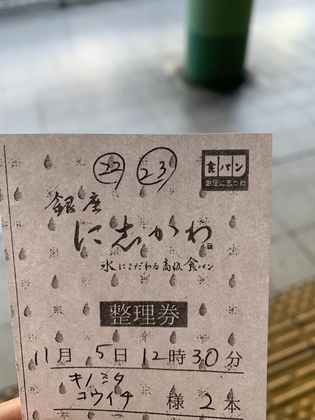 22 23
食パン
銀座に志かわ
銀座
に志かわ
水にこだわる高級食パン
整理券
11月5日12時30分
キノシタ
コウイチ 様 2本